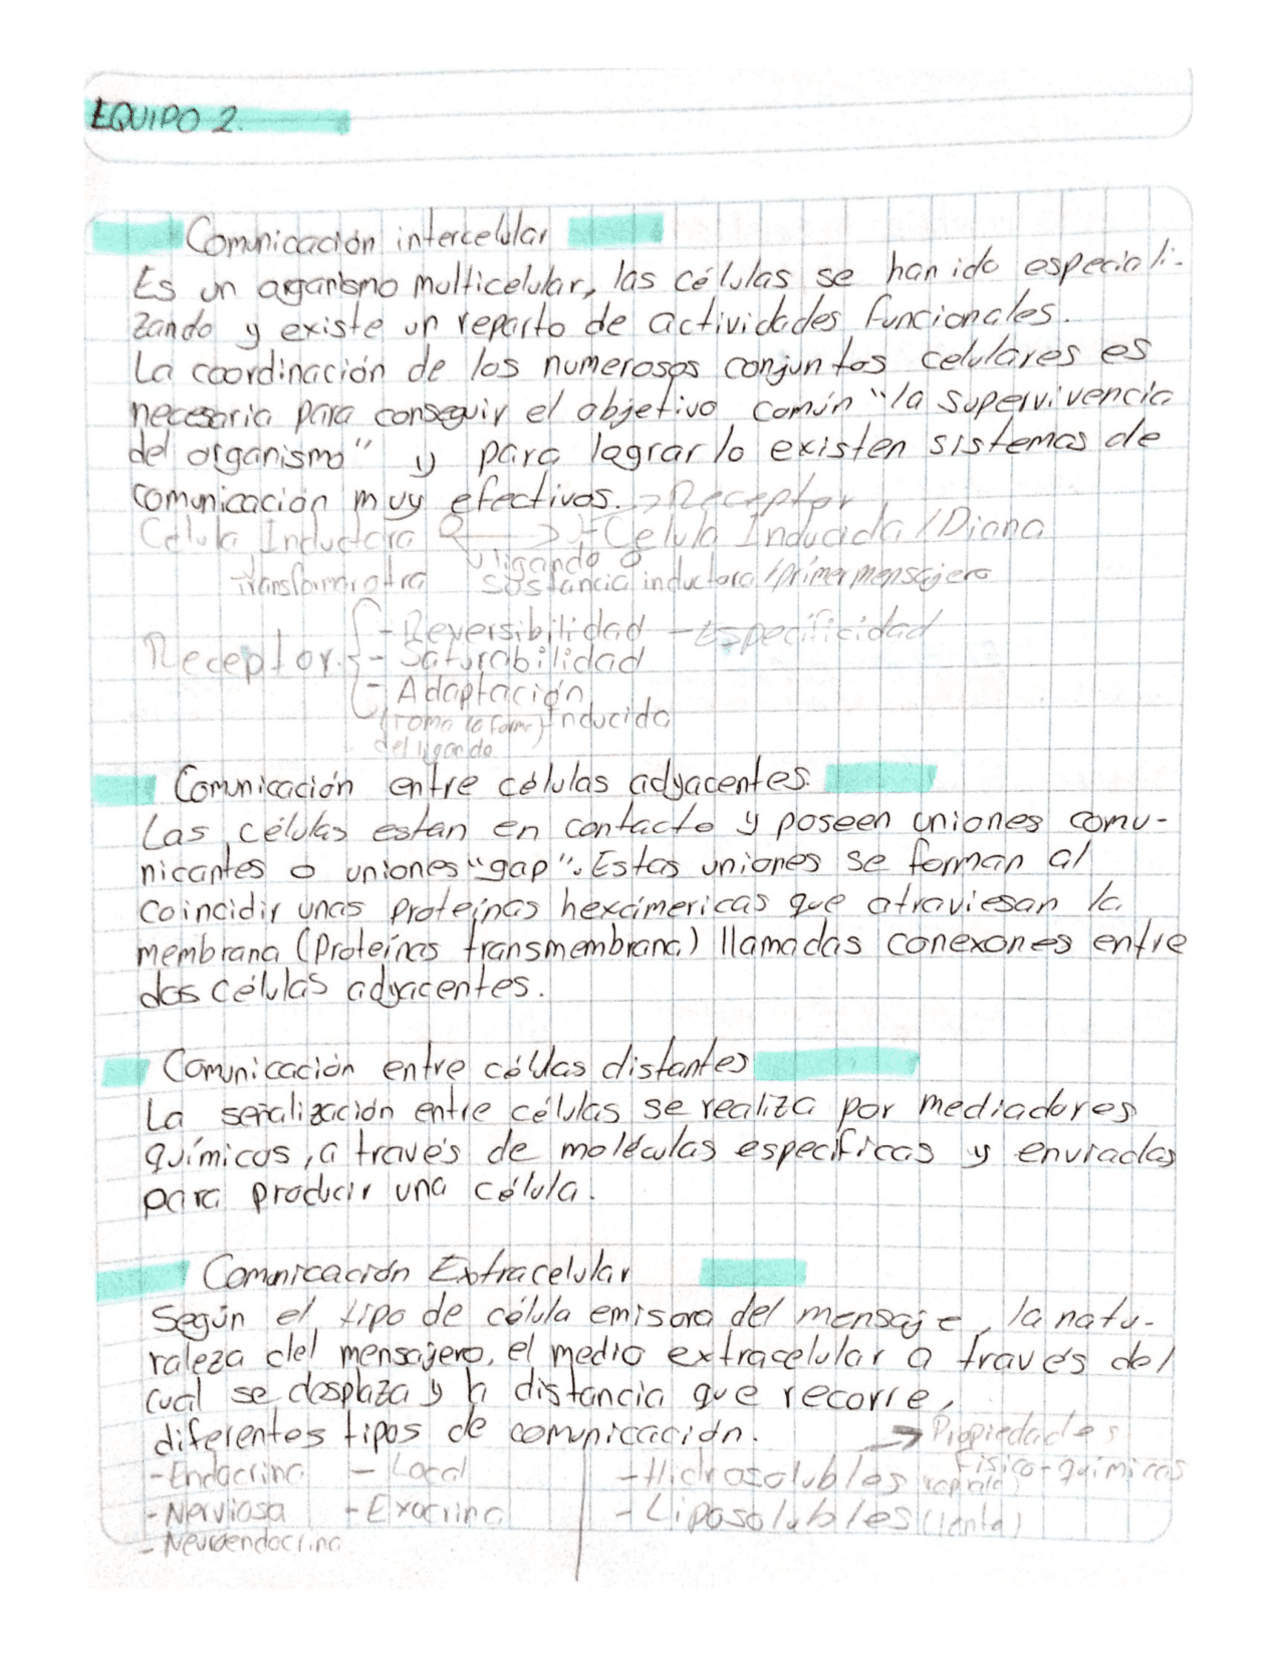 EQUIPO 2.
Comunicación intercelular
Es un organismo multicelular, las células se han ido especiali-
zando y existe un reparto de actividades funcionales.
La coordinación de los numerosos conjuntos celulares es
necesaria para conseguir el objetivo común "la supervivencia
del organismo" y para lograrlo existen sistemas de
comunicación muy efectivos. → Receptor
Célula Inductora → Celula Inducida/Diana
ligando o
Transforma otra sustancia inductora/primer mensajero
- Reversibilidad - Especificidad
Receptor. - Saturabilidad
- Adaptación
(Toma la forma) Inducida
del ligando
Comunicación entre células adyacentes.
Las células estan en contacto y poseen uniones comu-
nicantes o uniones "gap". Estas uniones se forman al
coincidir unas proteínas hexámericas que atraviesan la
membrana (Proteínas transmembrana) llamadas conexones entre
dos células adyacentes.
Comunicación entre células distantes
La señalización entre células se realiza por mediadores
químicos, a través de moléculas específicas y enviadas
para producir una célula.
Comunicación Extracelular
Según el tipo de célula emisora del mensaje, la natu-
raleza del mensajero, el medio extracelular a través del
cual se desplaza y la distancia que recorre,
diferentes tipos de comunicación. → Propiedades
- Endocrina - Local - Hidrosolubles (rapida) Fisico-químicas
- Nerviosa - Exocrina - Liposolubles (lenta)
- Neuroendocrina